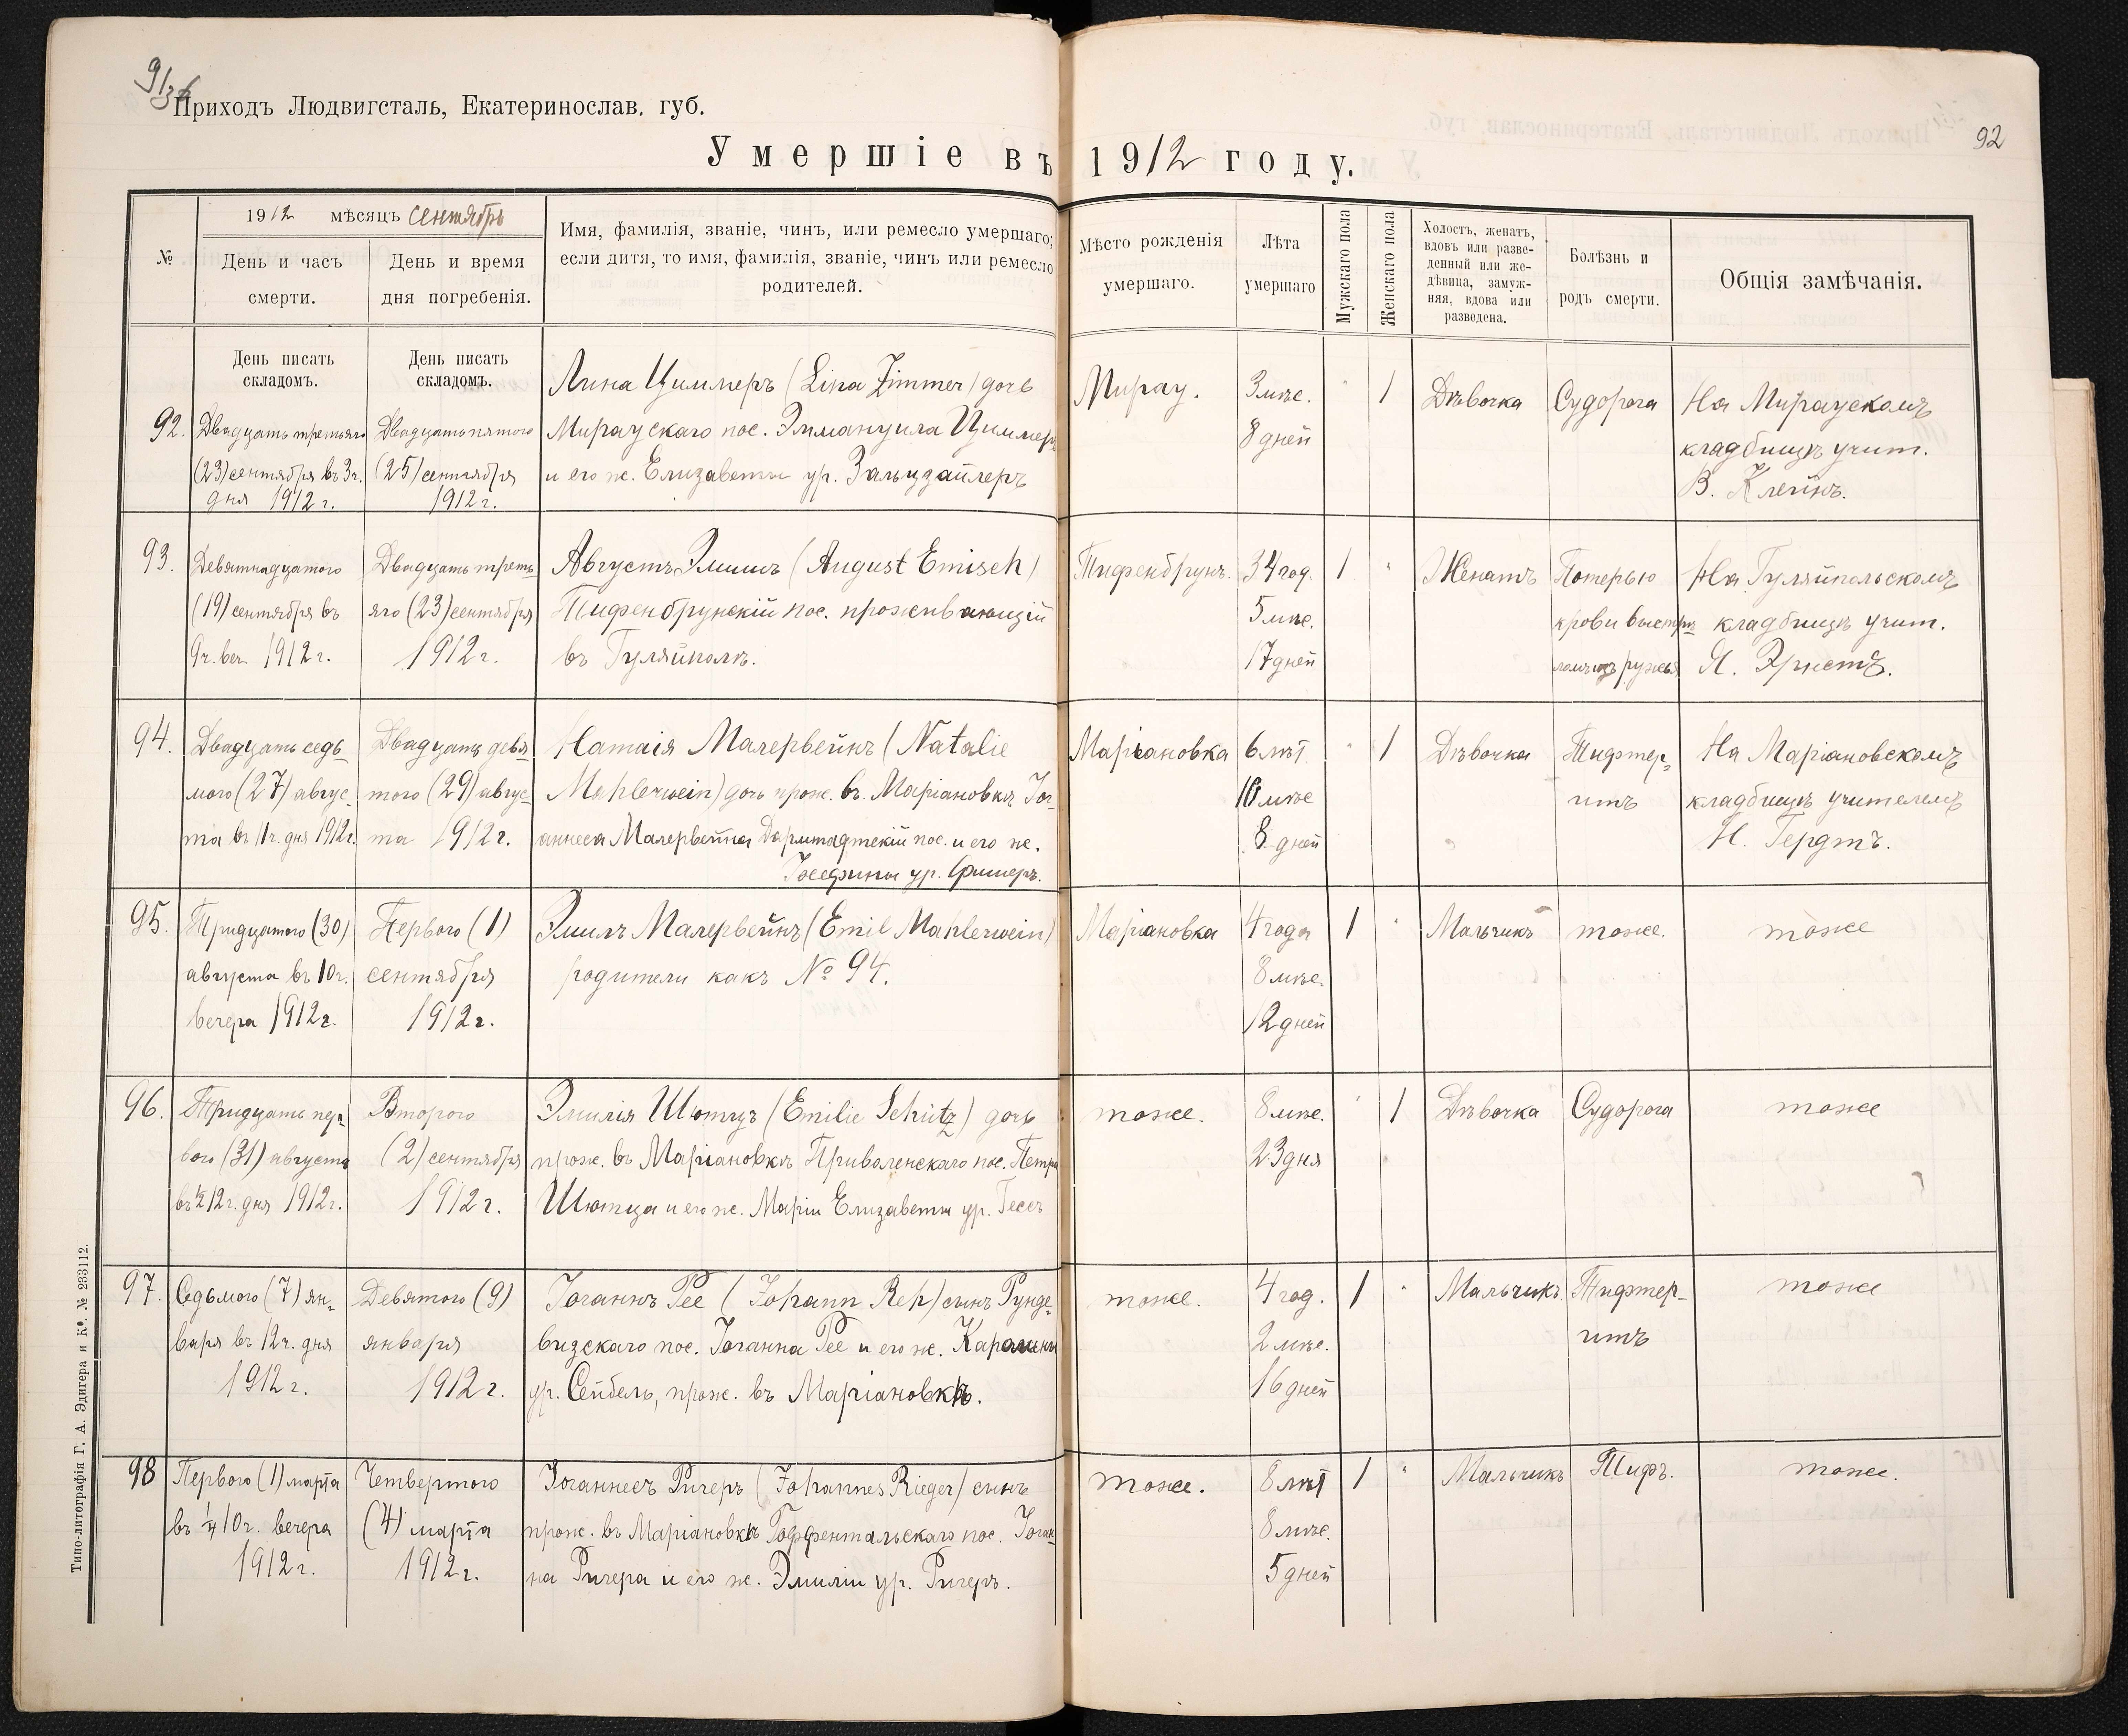 91/36
Приходъ Людвигсталь, Екатеринослав. губ.
92
Умершіе въ 1912 году.
№
1912 мѣсяцъ сентябрь
День и часъ смерти.
День и время дня погребенія.
Имя, фамилія, званіе, чинъ, или ремесло умершаго;
если дитя, то имя, фамилія, званіе, чинъ или ремесло
родителей.
Мѣсто рожденія умершаго.
Лѣта умершаго
Мужскаго пола
Женскаго пола
Холостъ, женатъ,
вдовъ или разве-
денный или же-
дѣвица, замуж-
няя, вдова или
разведена.
Болѣзнь и родъ смерти.
Общія замѣчанія.
День писать складомъ.
День писать складомъ.
92.
Двадцать третьяго
(23) сентября въ 3ч.
дня 1912 г.
Двадцать пятого
(25) сентября
1912 г.
Лина Циммеръ (Lina Zimmer) дочь
Мираускаго пос. Эммануила Циммеръ
и его ж. Елизаветы ур. Зальцзайлеръ
Мирау.
3 мѣс.
8 дней
1
Дѣвочка
Судорога
На Мираускомъ
кладбищѣ учит.
В. Клейнъ.
93.
Девятнадцатого
(19) сентября въ
9ч. веч. 1912 г.
Двадцать треть-
яго (23) сентября
1912 г.
Августъ Эмишъ (August Emisch)
Тифенбрунскій пос. проживающій
въ Гуляйполѣ.
Тифенбрунъ.
34 год.
5 мѣс.
17 дней
1
Женатъ
Потерью
крови выстрѣ-
ломъ изъ ружья
На Гуляйпольскомъ
кладбищѣ учит.
Я. Эрнстъ.
94.
Двадцать седь-
мого (27) авгус-
та въ 11ч. дня 1912г.
Двадцать девя-
того (29) авгус-
та 1912 г.
Натаія Малервейнъ (Natalie
Mahlerwein) дочь прож. въ Маріановкѣ Іог-
аннеса Малервейна Дармтадтскій пос. и его ж.
Іосефины ур. Фишеръ.
Маріановка
6 лѣт
10 мѣс
8 дней
1
Дѣвочка
Тифтер-
итъ
На Маріановскомъ
кладбищѣ учителемъ
Н. Гердтъ.
95.
Тридцатого (30)
августа въ 10ч.
вечера 1912г.
Первого (1)
сентября
1912 г.
Эмилъ Малервейнъ (Emil Mahlerwein)
родители какъ № 94.
Маріановка
4 года
8 мѣс.
12 дней
1
Мальчикъ
тоже.
тоже
96.
Тридцать пер-
вого (31) августа
въ ½ 12ч. дня 1912г.
Второго
(2) сентября
1912 г.
Эмилія Шютцъ (Emilie Schütz) дочь
прож. въ Маріановкѣ Приваленскаго пос. Петра
Шютца и его ж. Маріи Елизаветы ур. Гессъ
тоже.
8 мѣс.
23 дня
1
Дѣвочка
Судорога
тоже
97.
Седьмого (7) ян-
варя въ 12ч. дня
1912 г.
Девятого (9)
января
1912 г.
Іоганнъ Рее (Johann Reh) сынъ Рунде-
визскаго пос. Іоганна Рее и его ж. Каролины
ур. Сейбель, прож. въ Маріановкѣ.
тоже.
4 год.
2 мѣс.
16 дней
1
Мальчикъ
Тифтер-
итъ
тоже
98
Первого (1) марта
въ ¼ 10ч. вечера
1912 г.
Четвертого
(4) марта
1912 г.
Іоганнесъ Ригеръ (Johannes Rieger) сынъ
прож. въ Маріановкѣ Гоффентальскаго пос. Іоган-
на Ригера и его ж. Эмиліи ур. Ригеръ.
тоже.
8 лѣт
8 мѣс.
5 дней
1
Мальчикъ
Тифъ.
тоже.
Типо-литографія Г. А. Эдигера и Кº. № 233112.